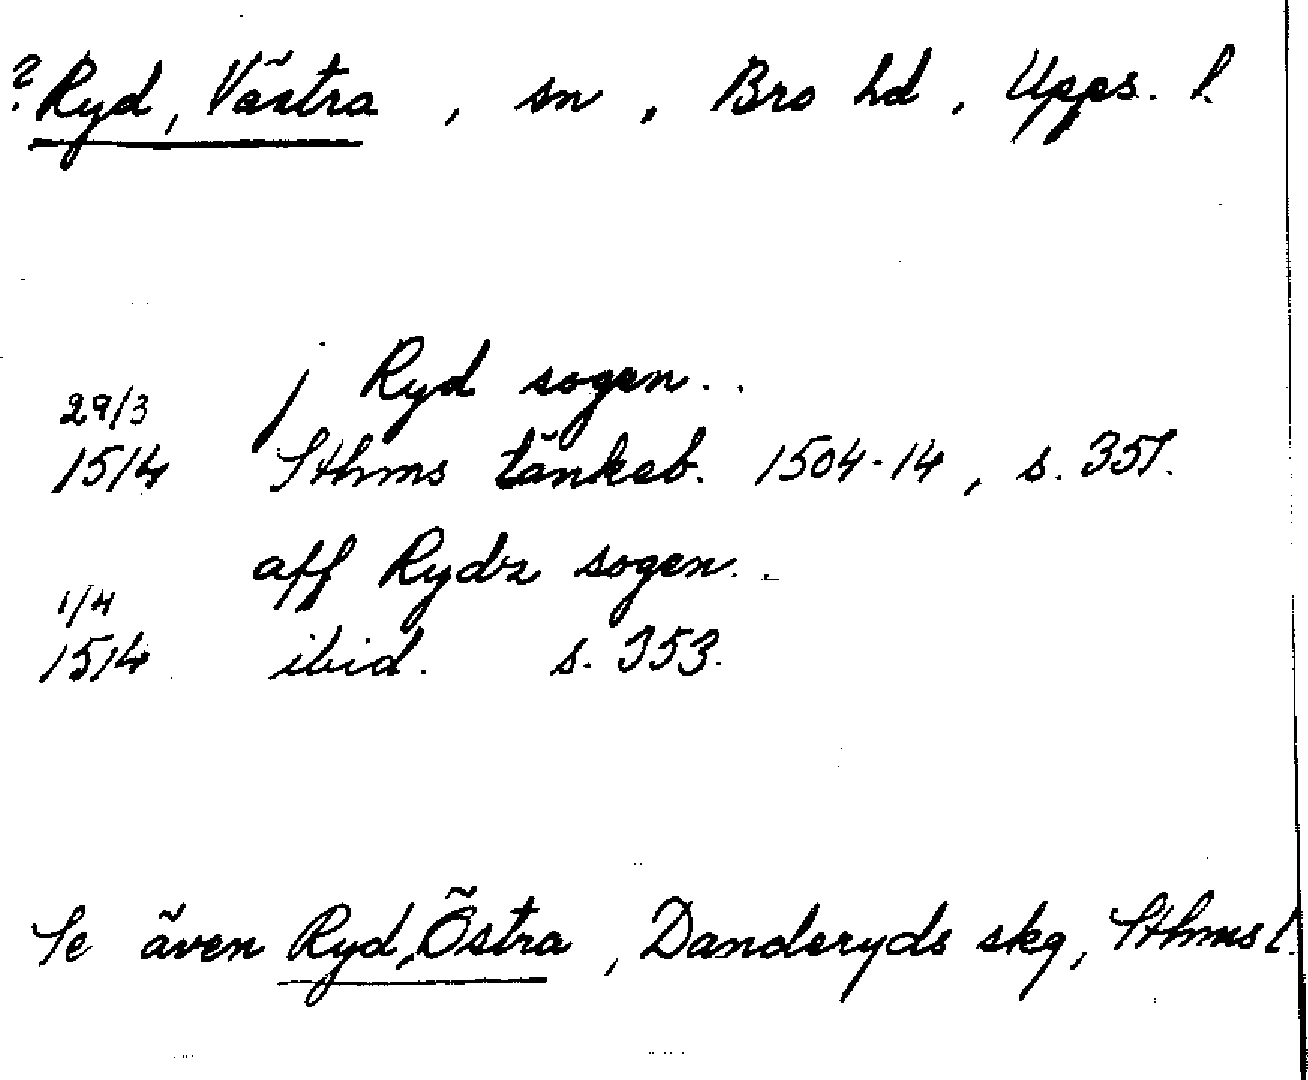 ? Ryd, Västra , sn , Bro hd , Upps. l.
j Ryd sogen..
29/3
1514 Sthms tänkeb. 1504-14 , s. 351.
aff Rydz sogen..
1/4
1514 ibid. s. 353.
Se även Ryd, Östra , Danderyds skg, Sthms l.